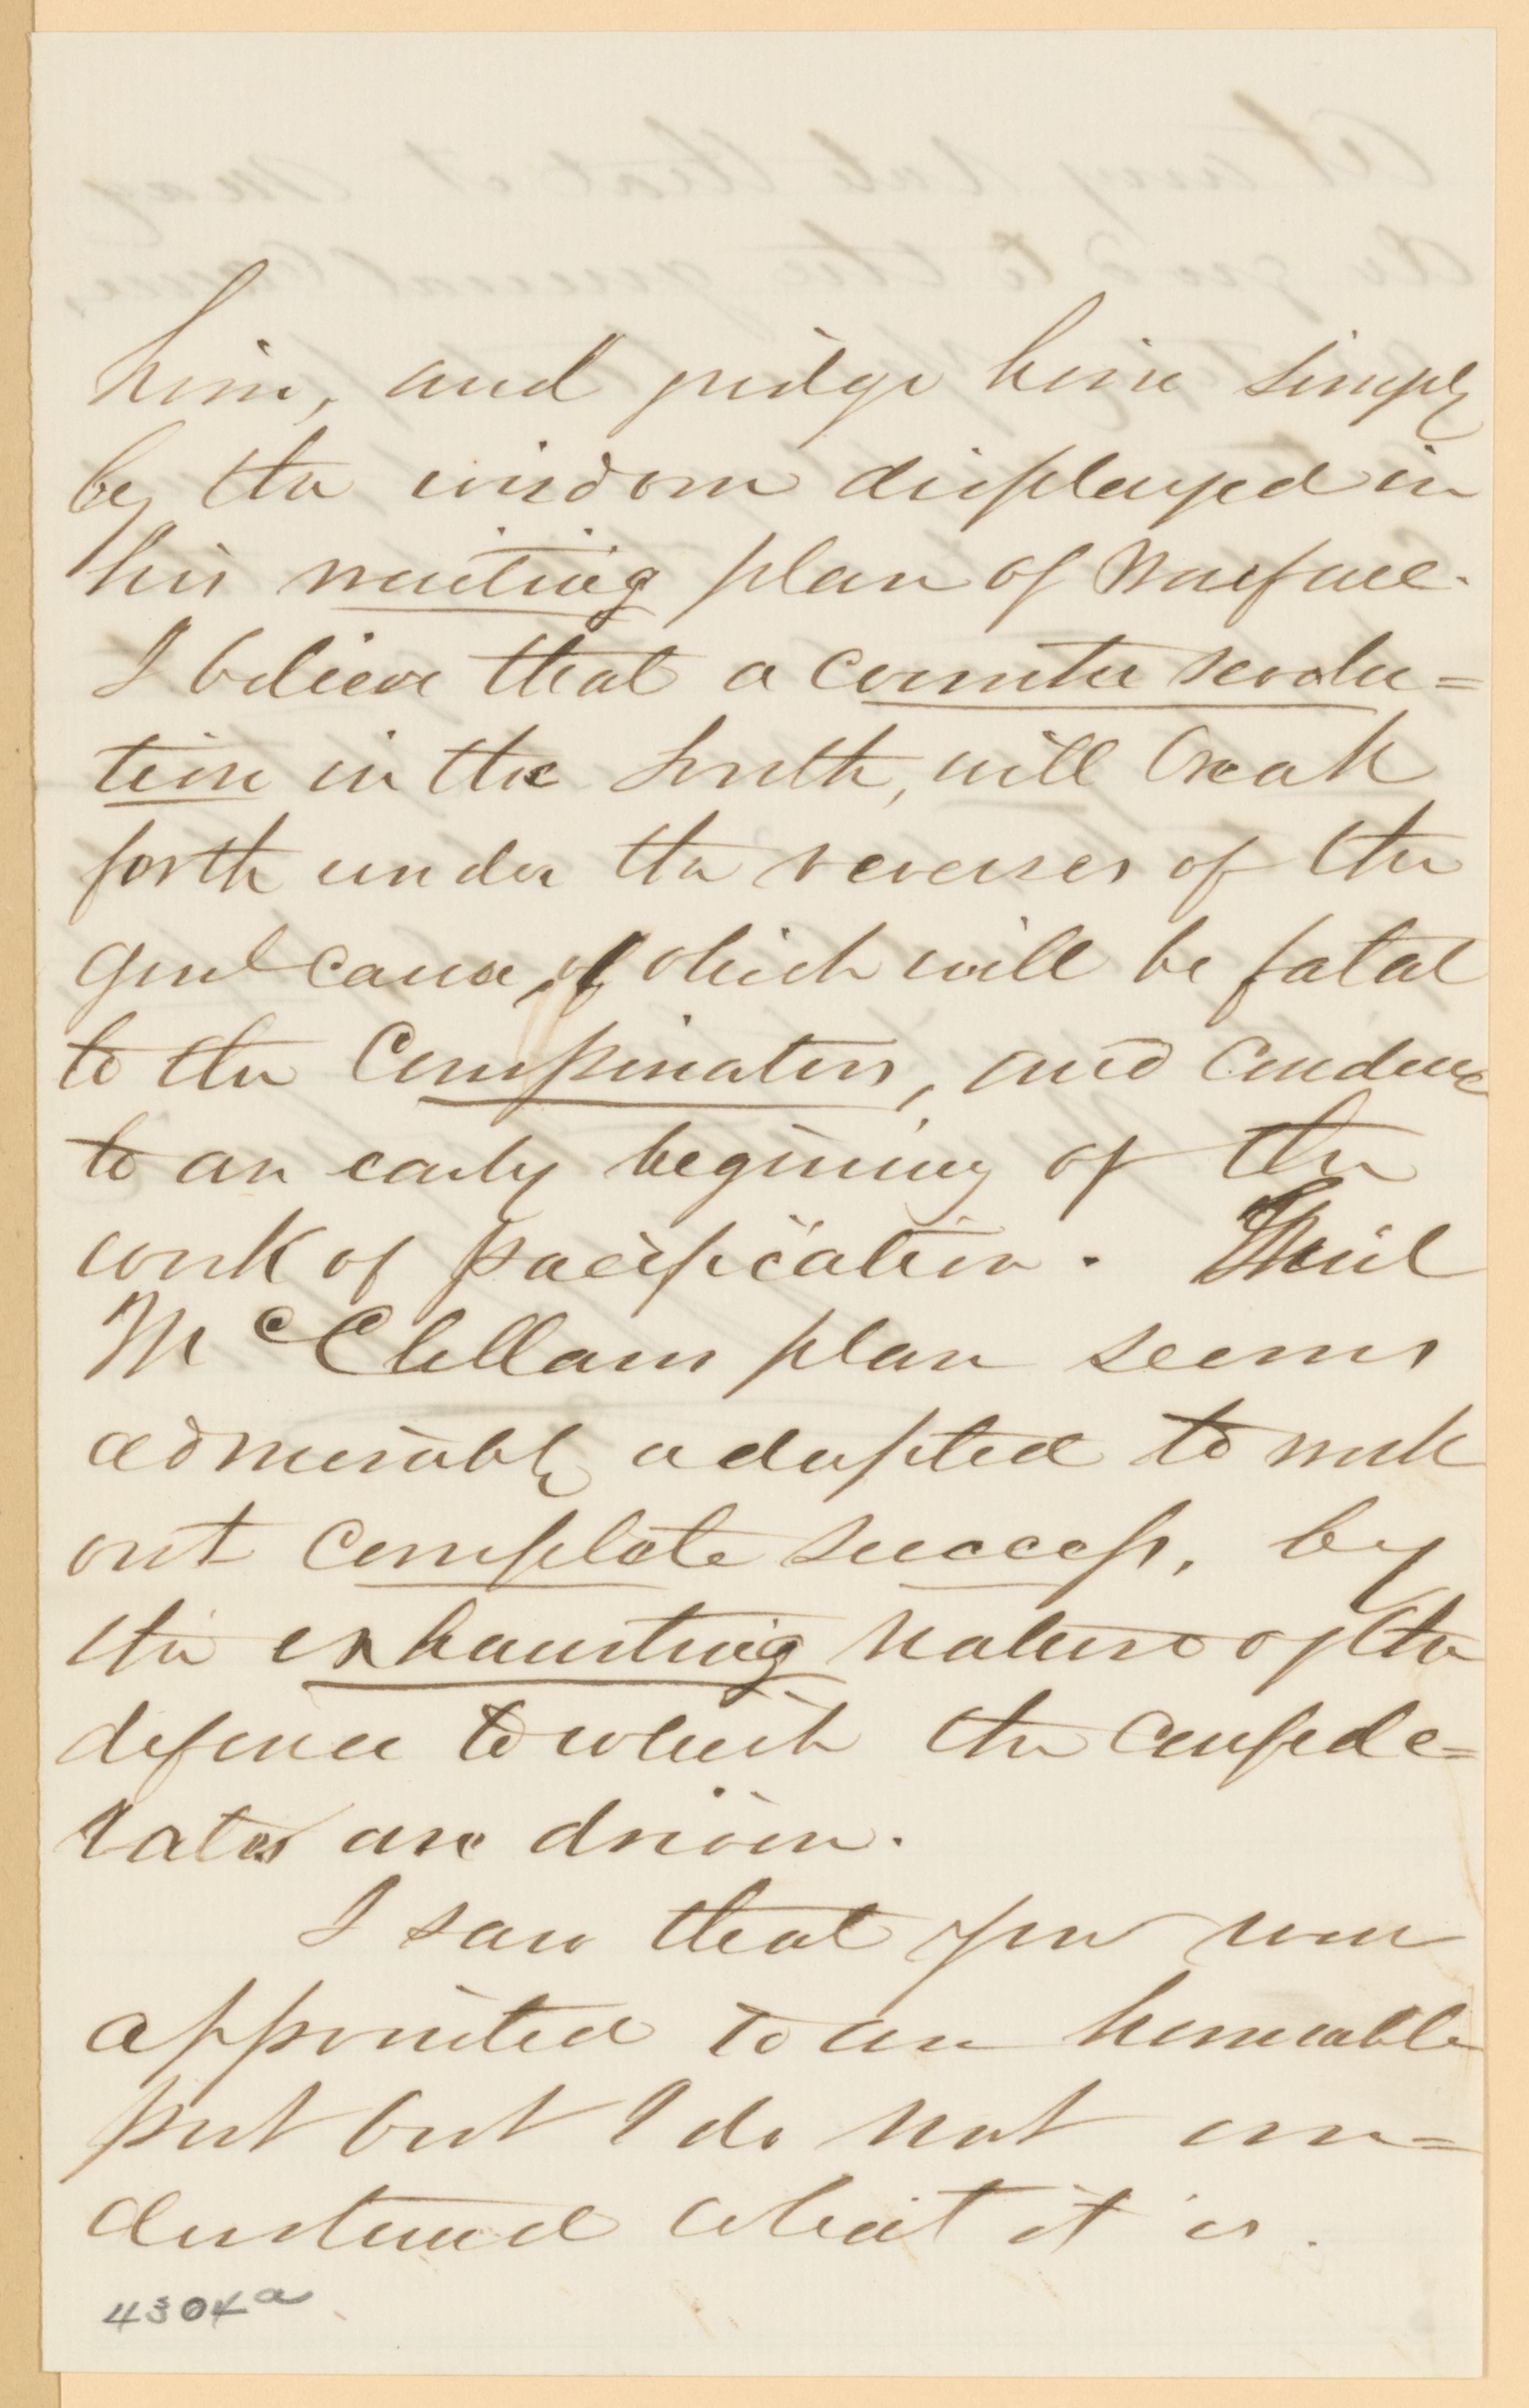 him, and judge him simply
by the wisdom displayed in
his waiting plan of warfare.
I believe that a counter revolu=
tion in the South, will break
forth under the reverses of the
genl cause, which will be fatal
to the Conspirators, and conduce
to an early begining of the
work of pacification.
McClellans plan seems
admirably adapted to work
out complete success, by
the exhausting nature of the
defence to which the confede=
rates are driven.
I saw that you were
appointed to an honorable
post but I do not un=
derstand what it is.
4304a